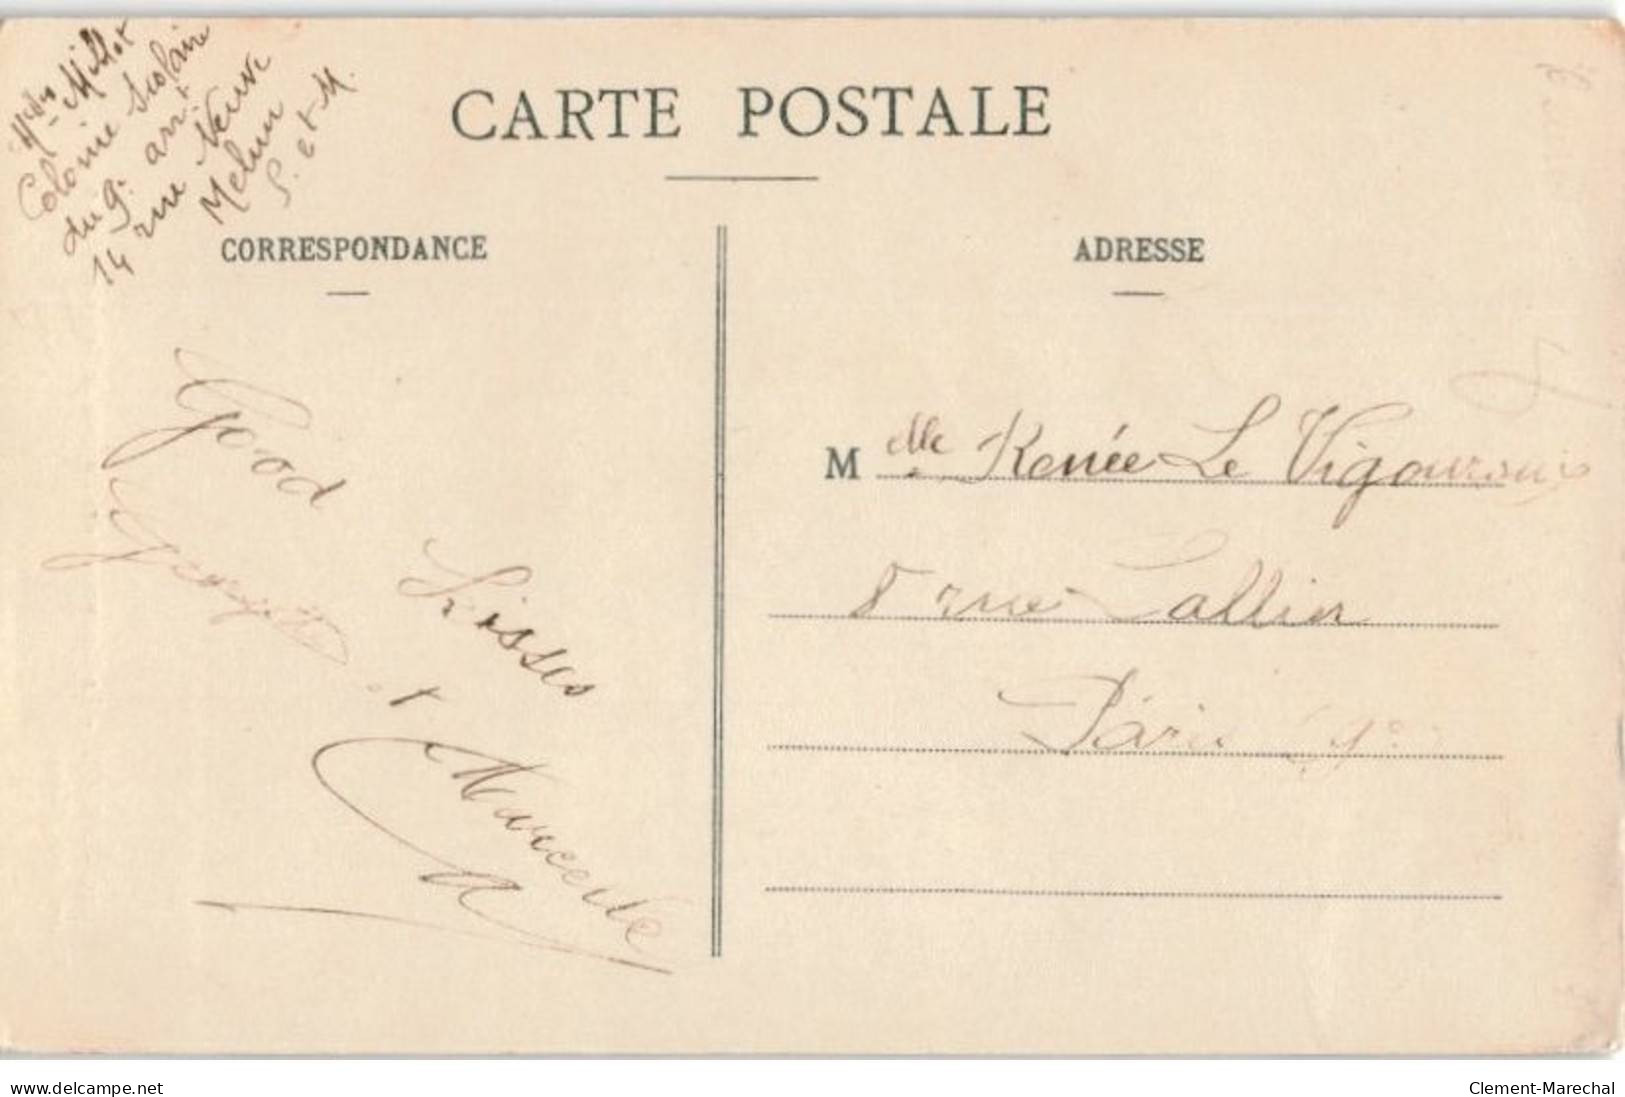 Melles Millot
Colonie Scolaire
du 9e arrt
14 rue Neuve
Melun
S. et M.
CARTE POSTALE
CORRESPONDANCE
ADRESSE
Good
Kisses
Georgette
et
Marcelle
M elle Renée Le Vigouroux
8 rue Lallier
Paris (9e)
www.delcampe.net
Clement-Marechal